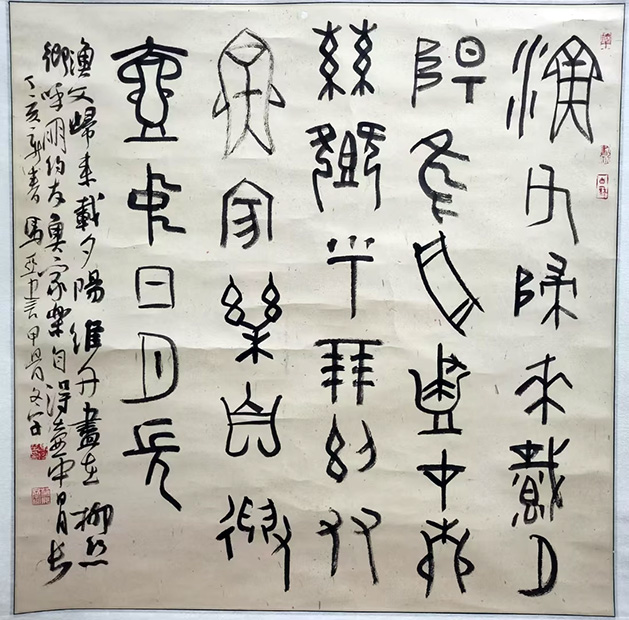 漁父歸來載夕
陽維舟畫在柳
絲鄉乎朋約友
魚家樂自得
壺中日月長
漁父歸来載夕陽維舟畫在柳絲
鄉呼朋約友魚家樂自得壺中日月長
丁亥新春 馬亞 書甲骨文字